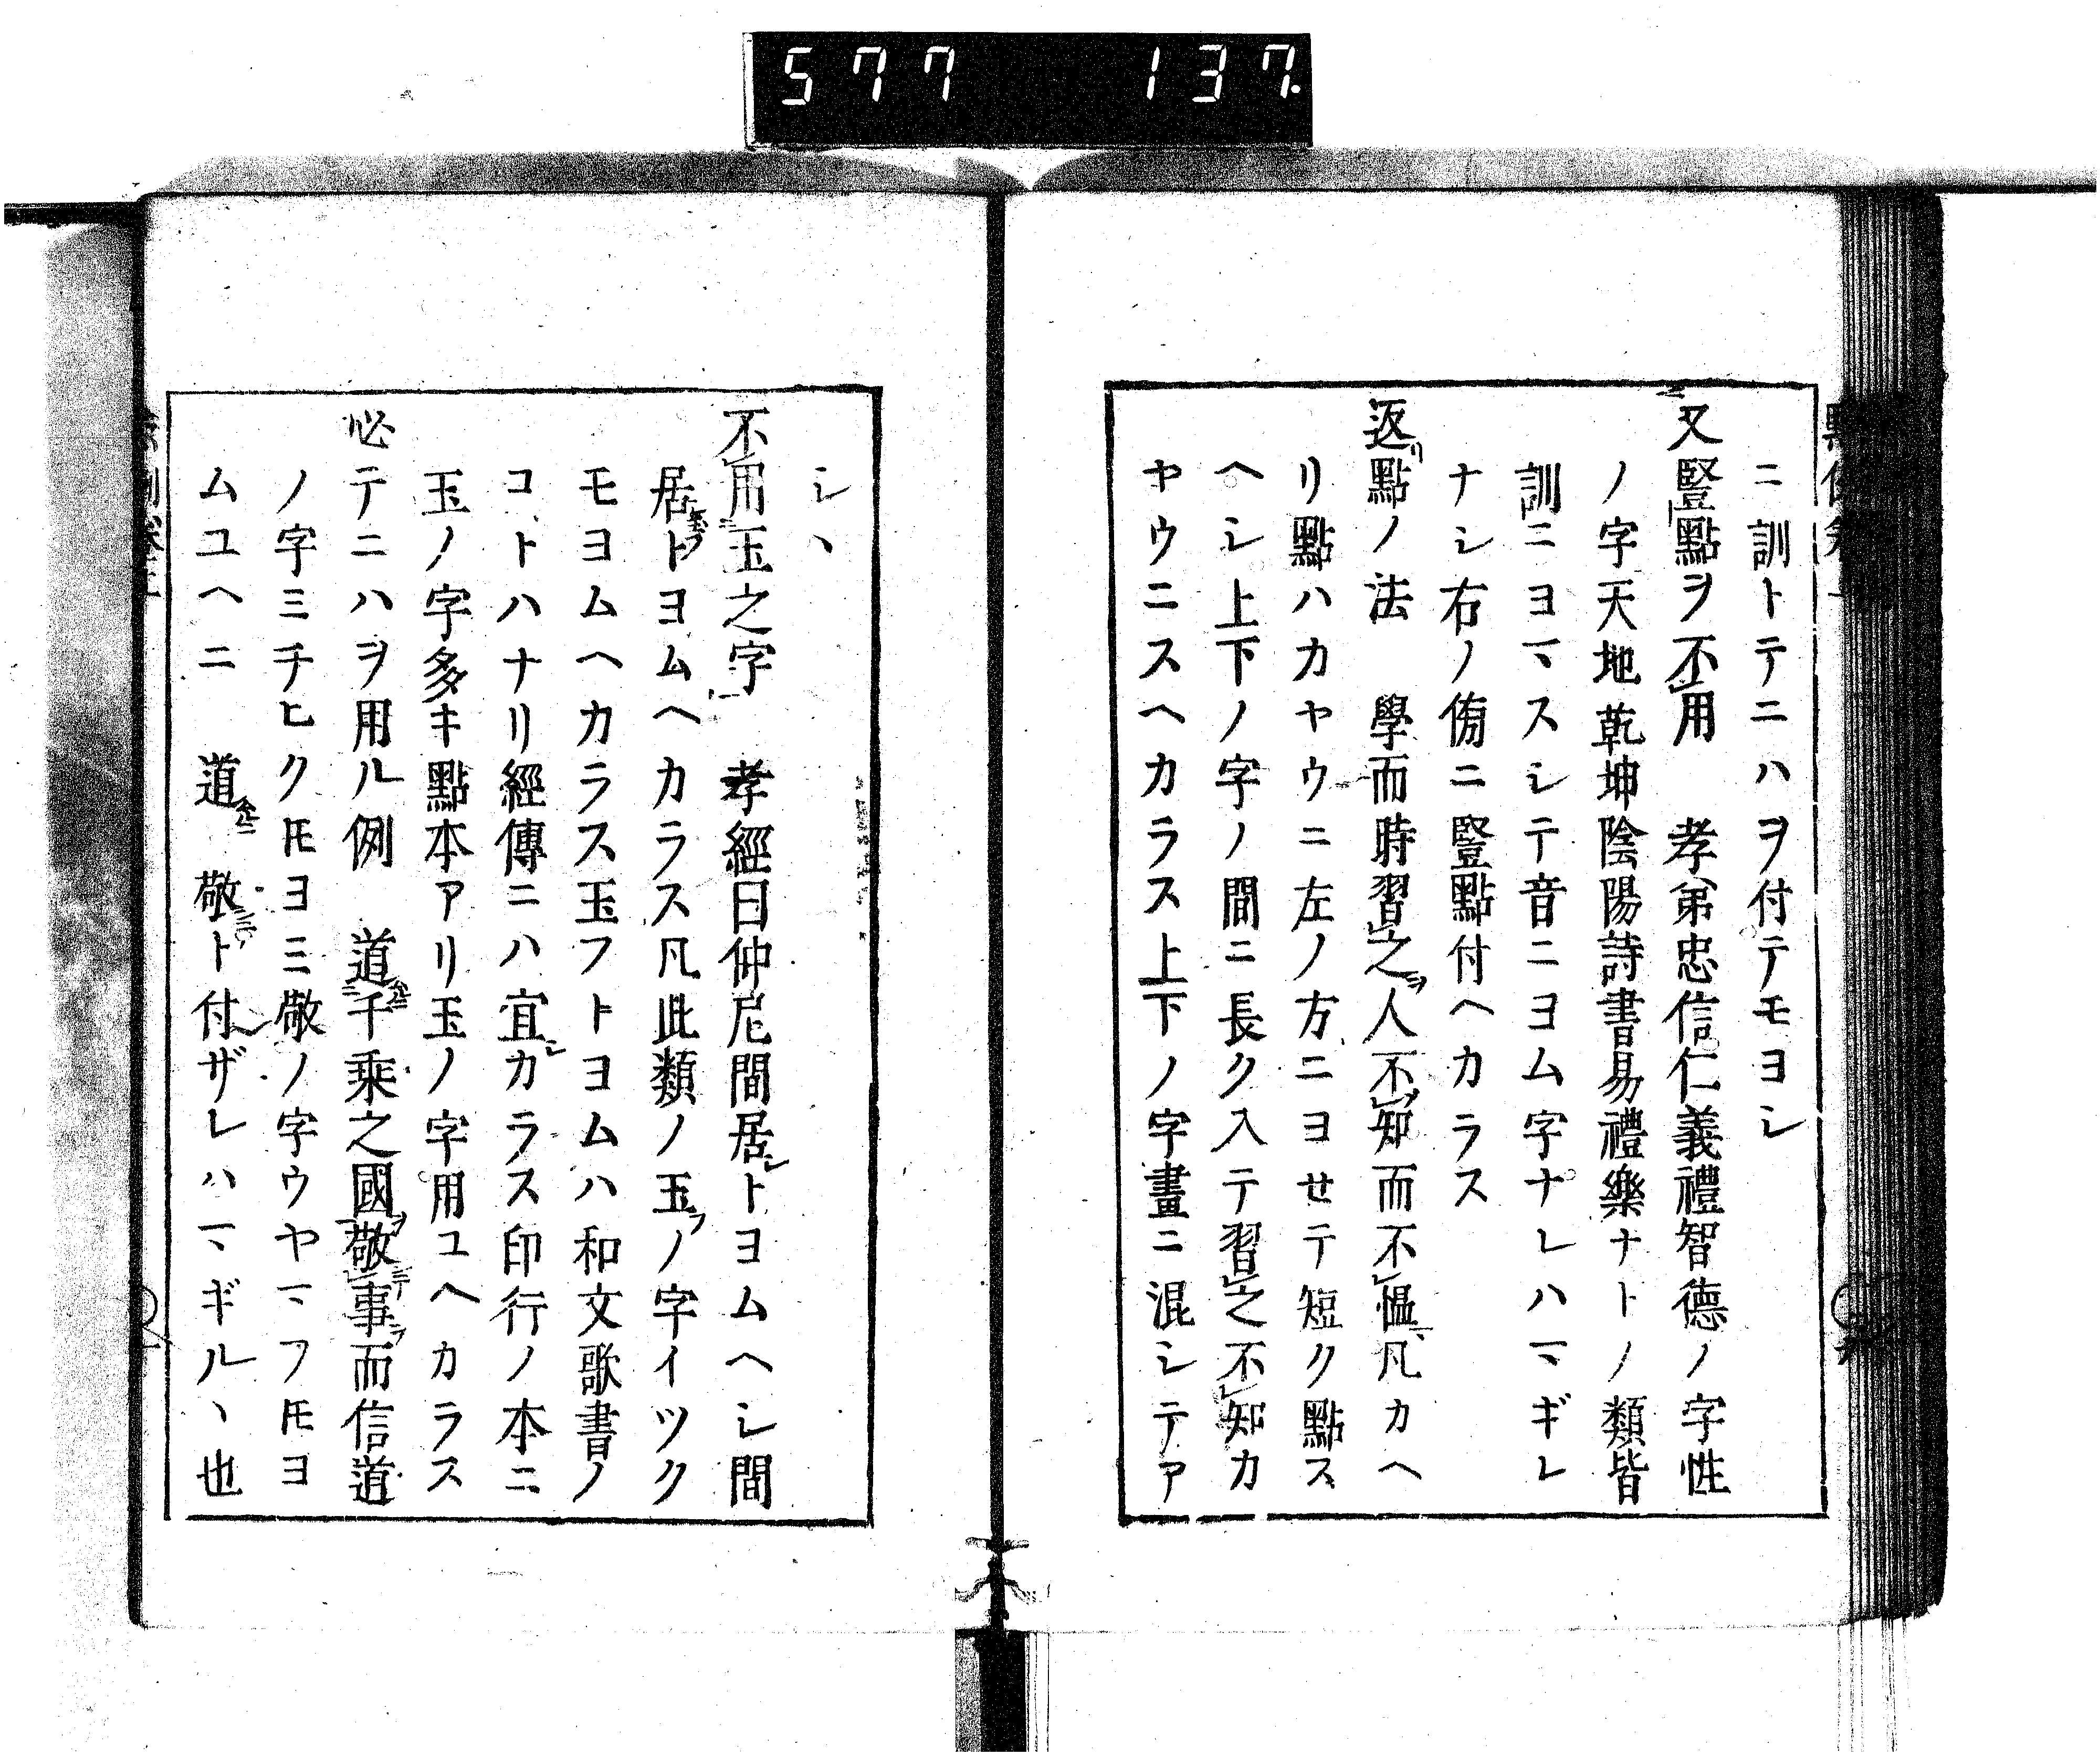 577 137.
ニ訓トテニハヲ付テモヨシ
又竪點ヲ不用 孝弟忠信仁義禮智德ノ字性
ノ字天地乾坤陰陽詩書易禮樂ナトノ類皆
訓ニヨマスシテ音ニヨム字ナレハマギレ
ナシ右ノ傍ニ竪點付ヘカラス
返點ノ法 學而時習之人不知而不慍凡カヘ
リ點ハカヤウニ左ノ方ニヨセテ短ク點ス
ヘシ上下ノ字ノ間ニ長ク入テ習之不知カ
ヤウニスヘカラス上下ノ字畫ニ混シテア
シヽ
不用玉之字 孝經曰仲尼間居トヨムヘシ間
居トヨムヘカラス凡此類ノ玉ノ字イツク
モヨムヘカラス玉フトヨムハ和文歌書ノ
コトハナリ經傳ニハ宜カラス印行ノ本ニ
玉ノ字多キ點本アリ玉ノ字用ユヘカラス
必テニハヲ用ル例 道千乘之國敬事而信道
ノ字ミチヒクトモヨミ敬ノ字ウヤマフトモヨ
ムユヘニ 道 敬ト付ザレハマギルヽ也